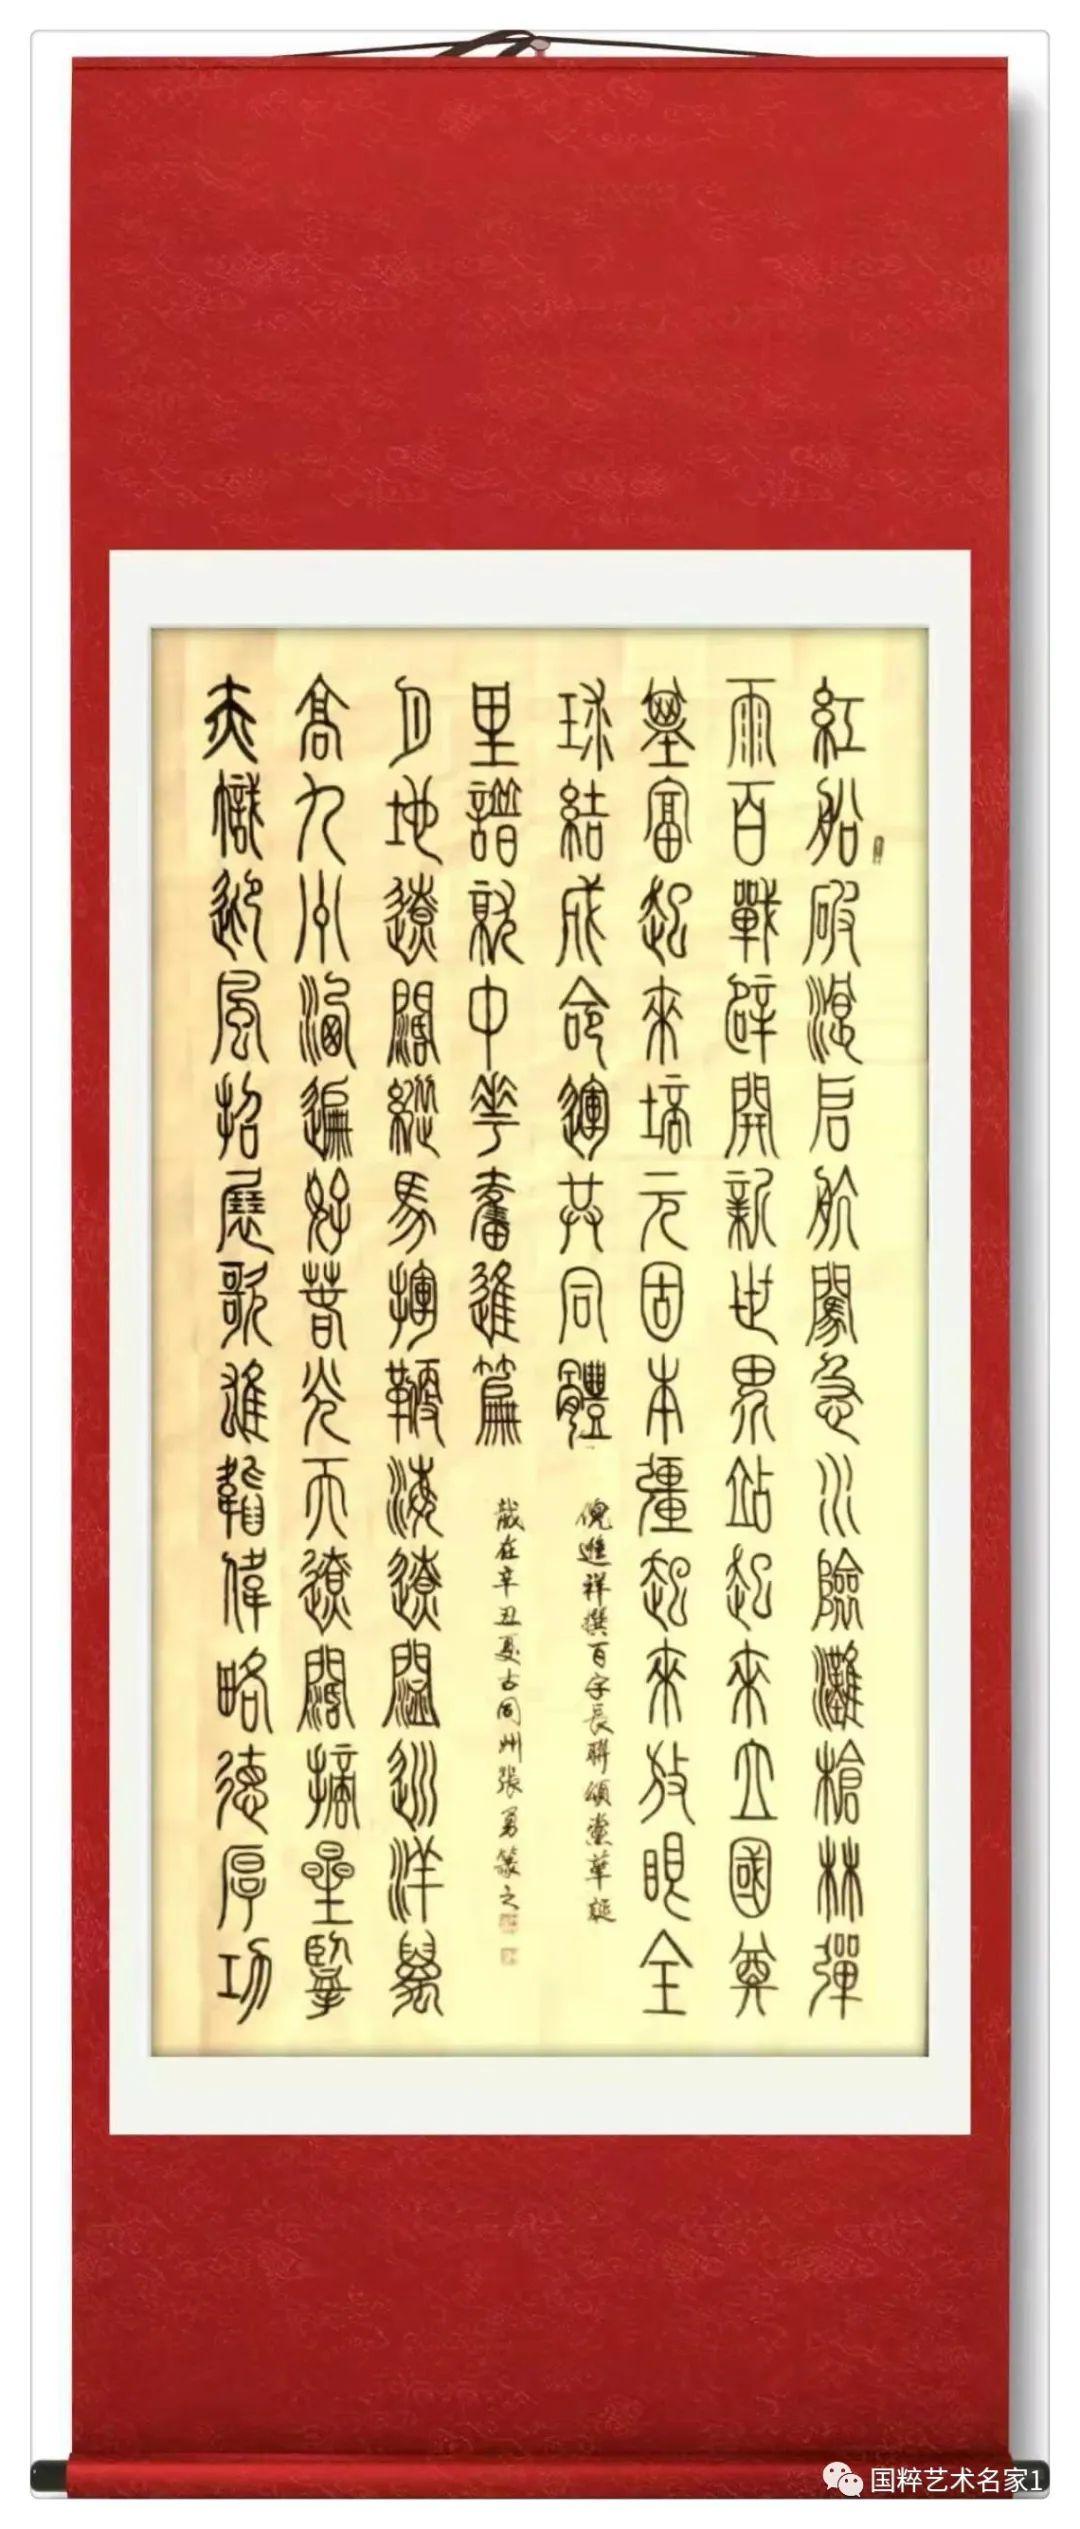 紅船破浪启航闖急川險灘槍林彈
雨百戰辟開新世界站起來立國尊
基富起來培元固本彊起來放眼全
球結成命運共同體
赤幟迎風招展歌雄韜偉略德厚功
高九州遍好春光天遼闊摘星擥
月地遼闊縱馬揮鞭海遼闊巡洋萬
里譜就中華奮進篇
倪進祥撰百字長聯頌黨華誕
歲在辛丑夏古同州張勇篆之
国粹艺术名家1